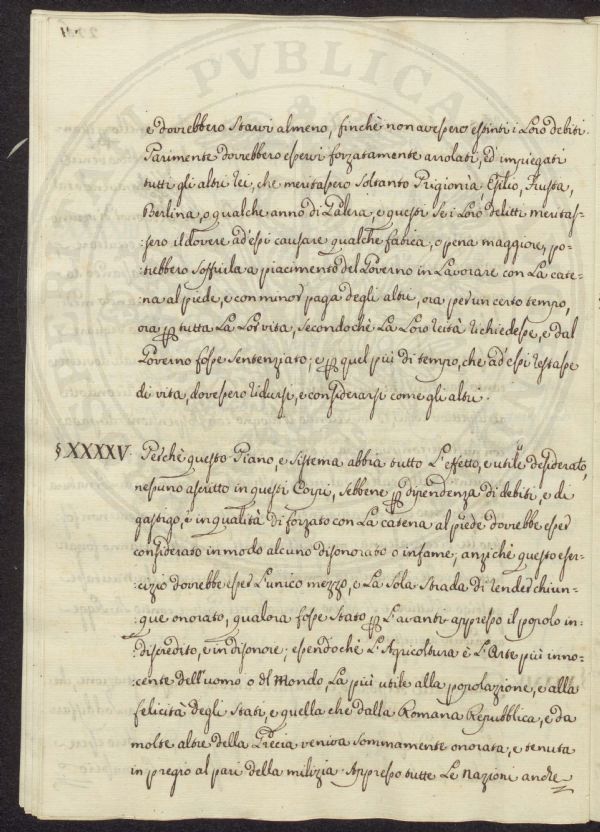 e dovrebbero starvi almeno, finchè non avessero estinti i Loro debiti.
Parimente dovrebbero esservi forzatamente arrolati, ed impiegati
tutti gli altri rei, che meritassero soltanto Prigionìa Esilio, Frusta,
Berlina, o qualche anno di Galera, e questi se i Loro delitti meritas-
:sero il dovere ad'essi causare qualche fatica, o pena maggiore, po-
:trebbero soffrirla a piacimento del Governo in Lavorare con La cate-
:na al piede, e con minor paga degli altri, ora per un certo tempo,
ora p tutta La Lor vita, secondochè La Loro reità richiedesse, e dal
Governo fosse sentenziato; e p quel più di tempo, che ad'essi restasse
di vita, dovessero ridursi, e considerarsi come gli altri.
§ XXXXV. Perchè questo Piano, e Sistema abbia tutto L'effetto, e utile desiderato,
nessuno ascritto in questi Corpi, sebbene p dipendenza di debiti, e di
gastigo, e in qualità di forzato con La catena al piede dovrebbe esser
considerato in modo alcuno disonorato o infame; anzichè questo eser-
:cizio dovrebbe esser L'unico mezzo, e La sola strada di render chiun-
:que onorato, qualora fosse stato p L'avanti appresso il popolo in
:discredito, e in disonore; essendochè L'Agricoltura è L'Arte più inno-
:cente dell'uomo o del Mondo, La più utile alla popolazione, e alla
felicità degli Stati, e quella che dalla Romana Repubblica, e da
molte altre della Grecia veniva sommamente onorata, e tenuta
in pregio al pari della milizia. Appresso tutte Le nazioni anche